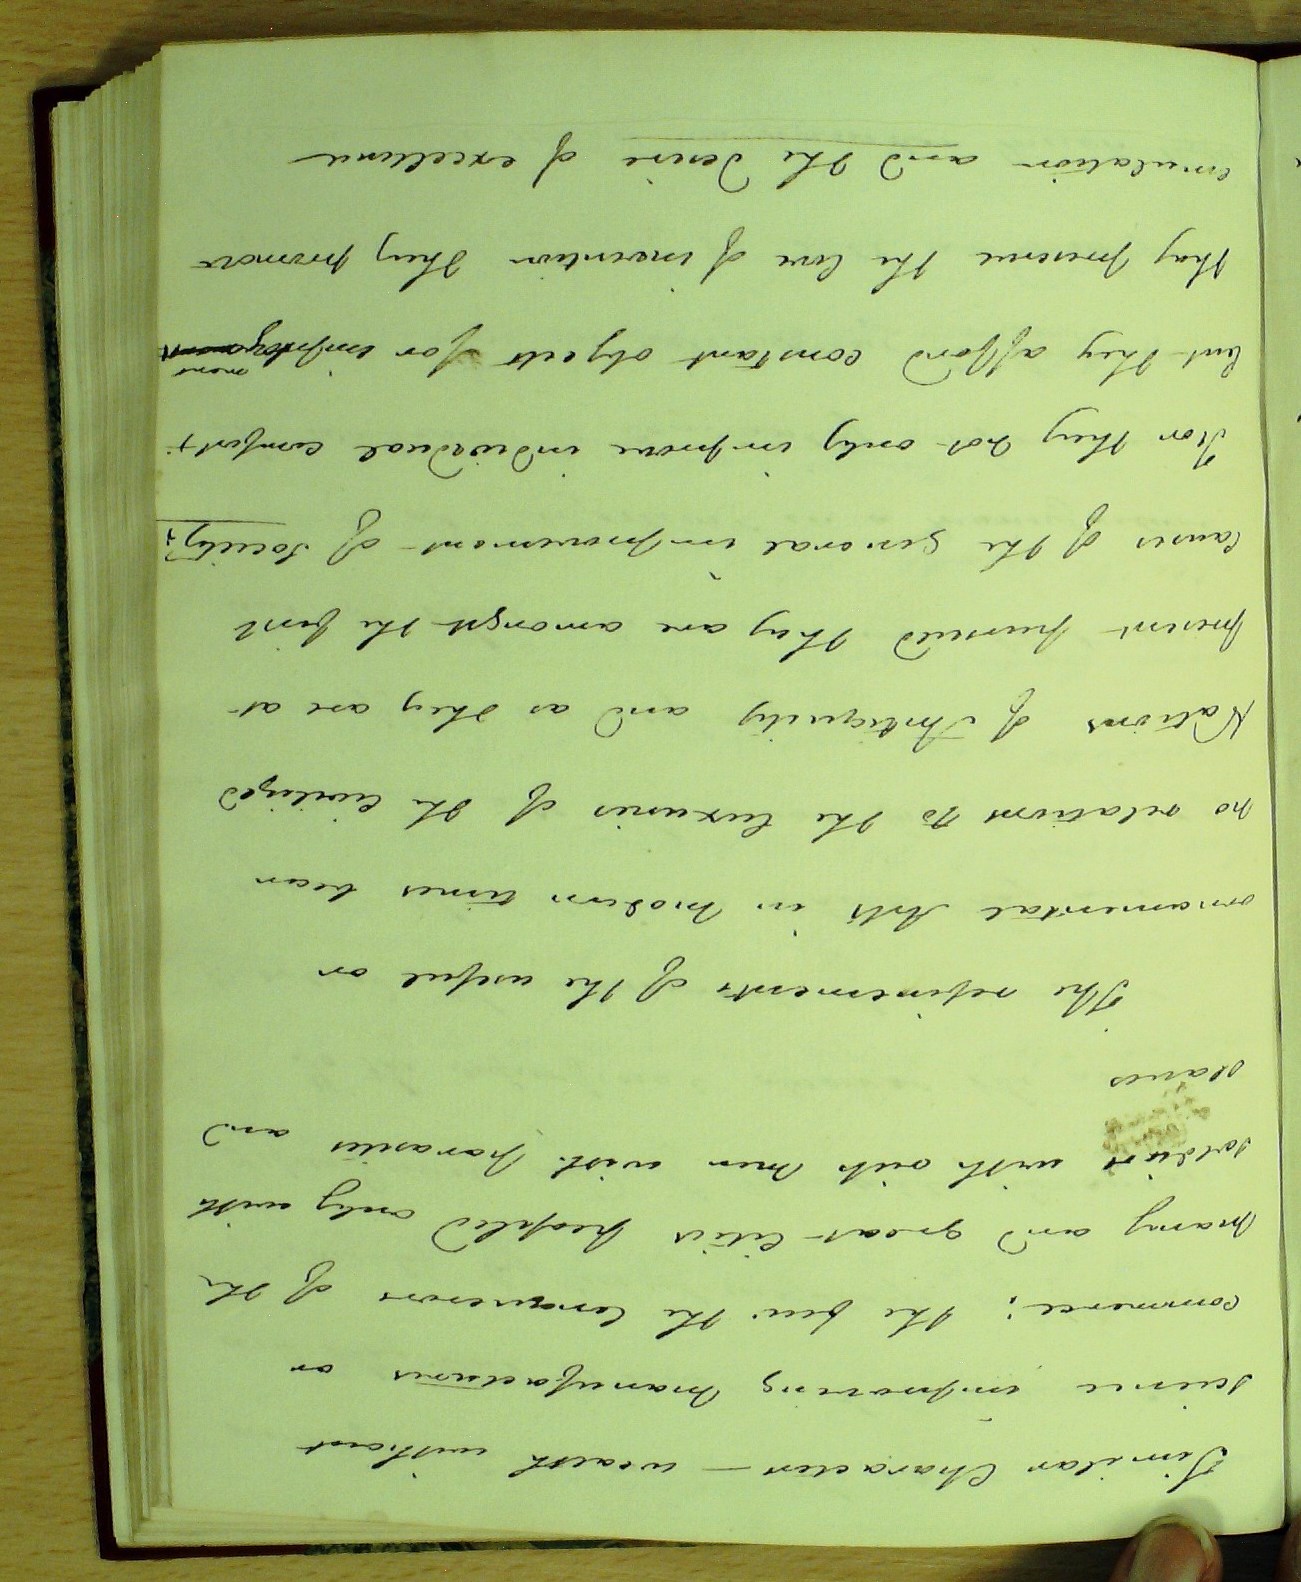 Similar Character – wealth without
science improving manufactures or
commerce; the few the Conquerors of the
many and great Cities peopled only with
soldiers with out men with parasites and
slaves
The refinements of the useful or
ornamental Arts in modern times bear
no relations to the luxuries of the Civilized
Nations of Antiquity and as they are at
present pursued they are amongst the first
Causes of the general improvement of Society;
For they not only improve individual comfort;
but they afford constant objects for employ
ment
they preserve the love of invention they promote
emulation and the desire of excellence